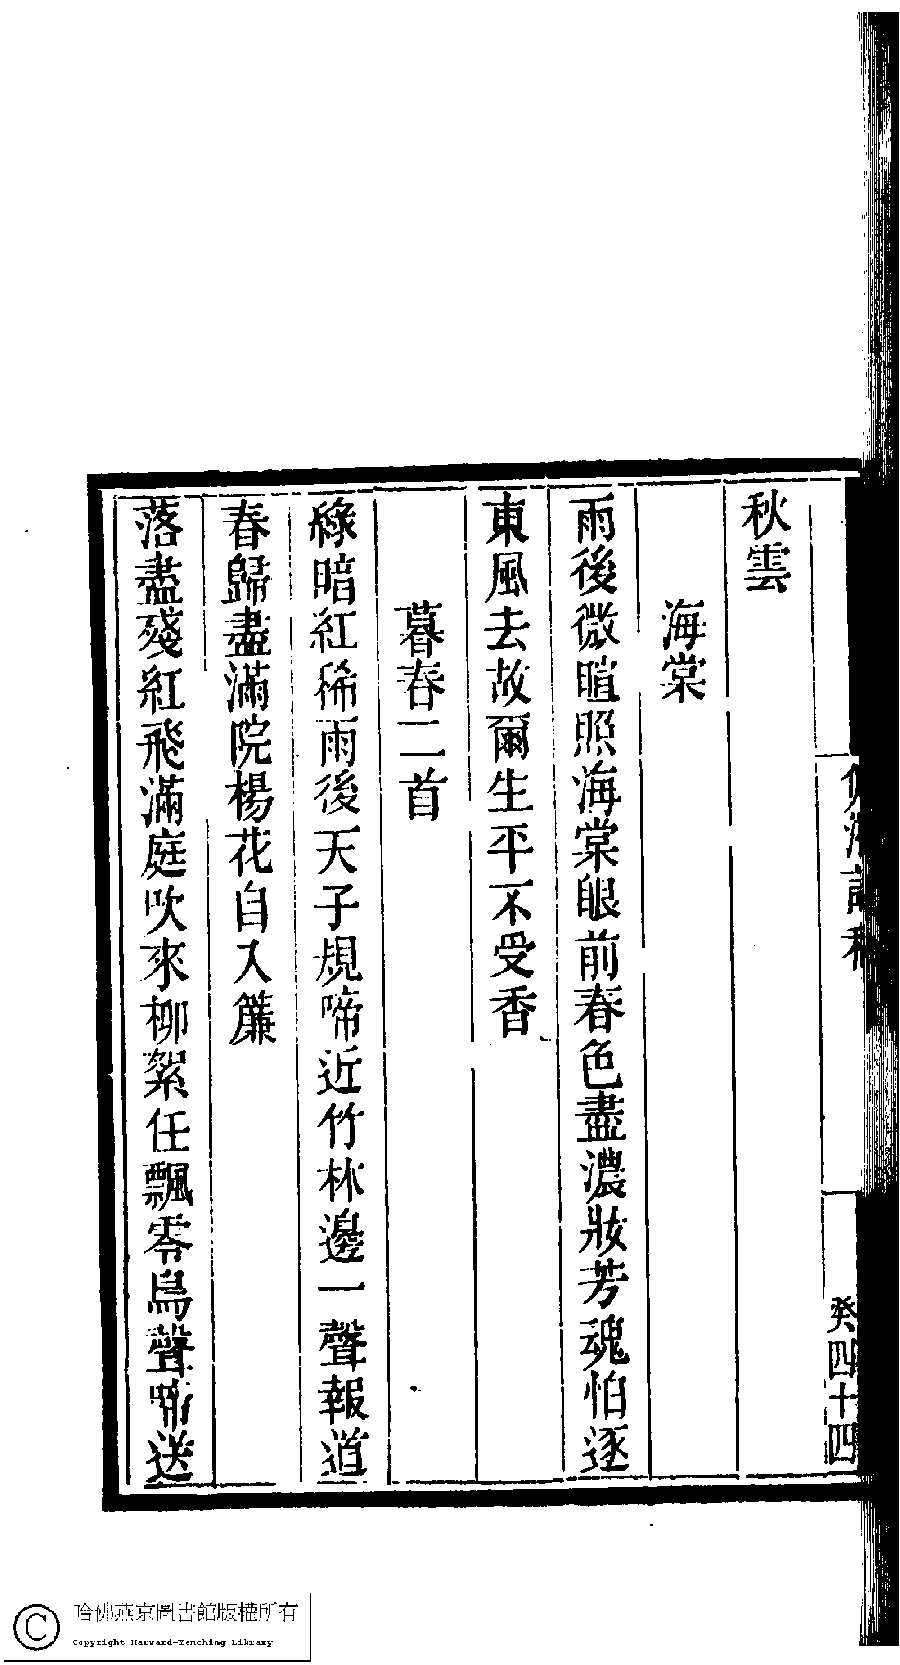 秋雲
海棠
雨後微暄照海棠眼前春色盡濃妝芳魂怕逐
東風去故爾生平不受香
暮春二首
綠暗紅稀雨後天子規啼近竹林邊一聲報道
春歸盡滿院楊花自入簾
落盡殘紅飛滿庭吹來柳絮任飄零鳥聲啼送
癸四十四
哈佛燕京圖書館版權所有
Copyright Harvard-Yenching Library